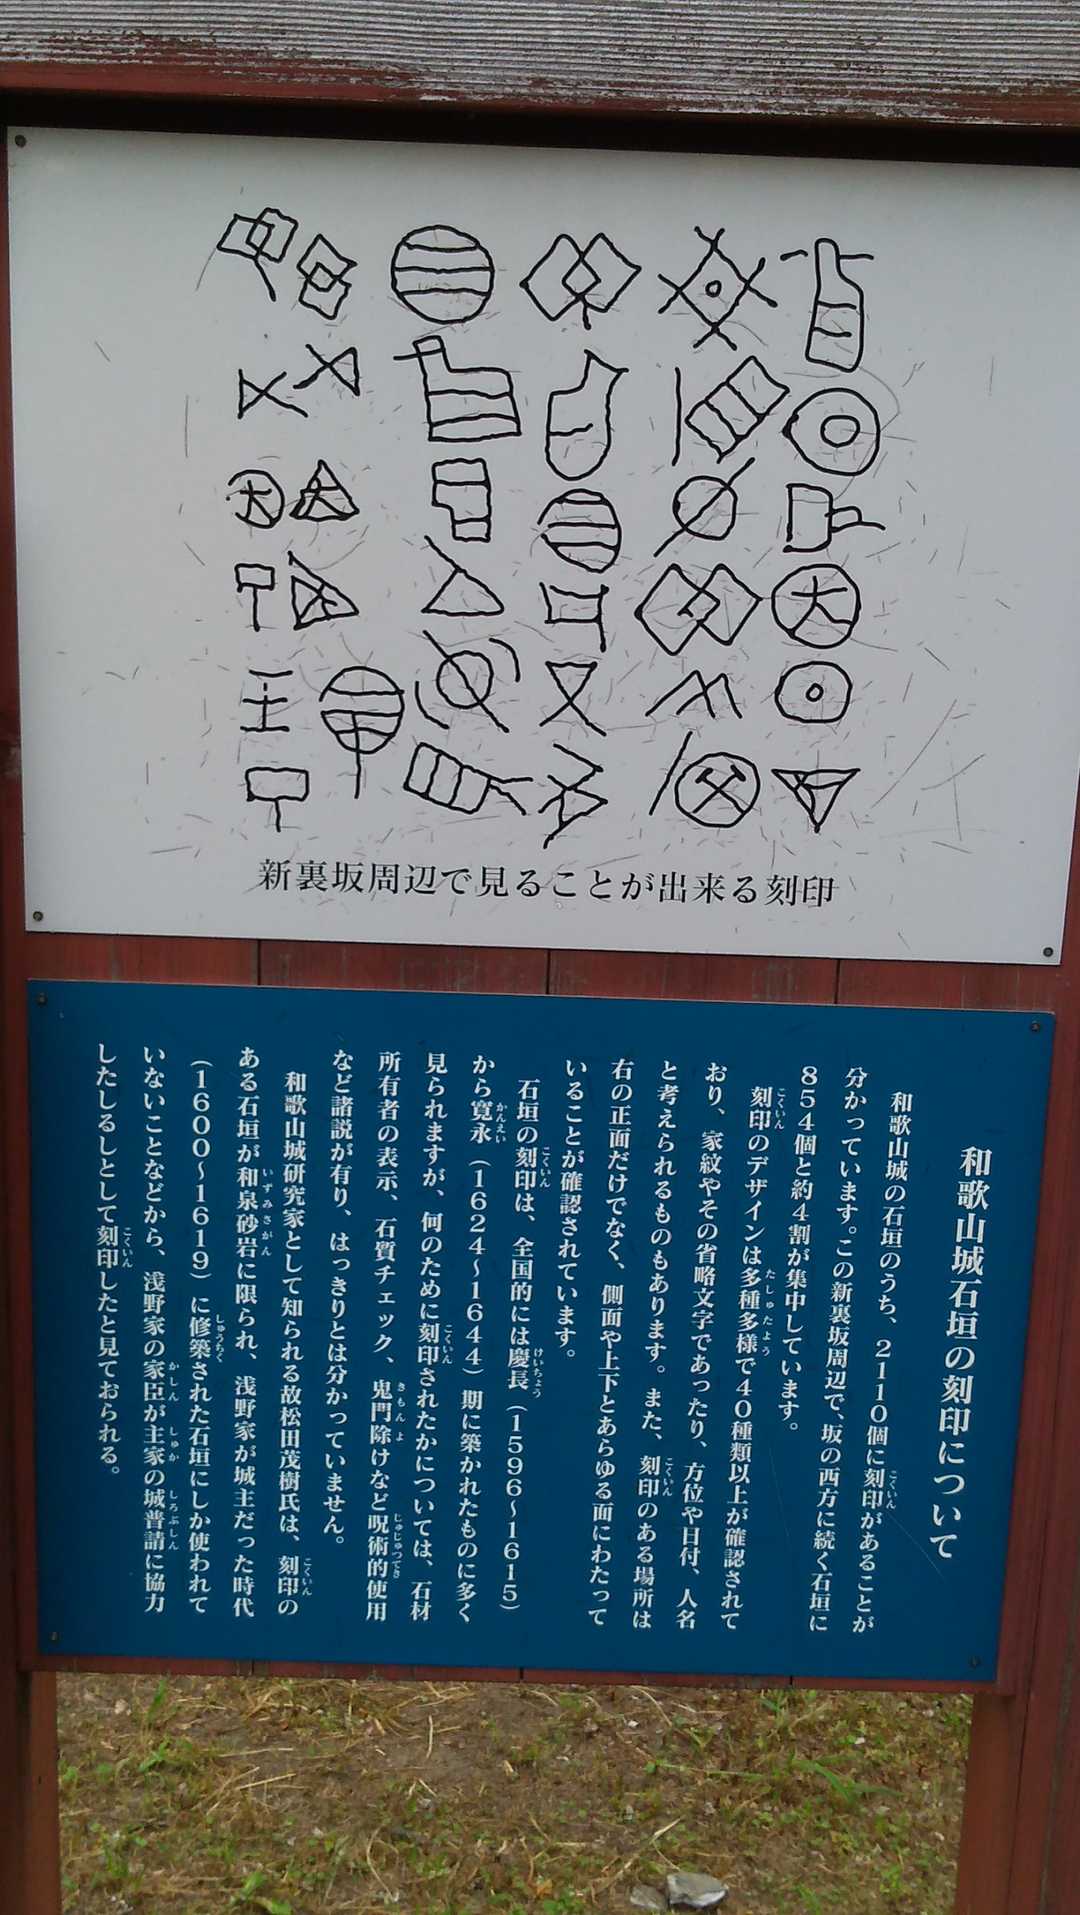 新裏坂周辺で見ることが出来る刻印
和歌山城石垣の刻印について
和歌山城の石垣のうち、2110個に刻印があることが
分かっています。この新裏坂周辺で、坂の西方に続く石垣に
854個と約4割が集中しています。
刻印のデザインは多種多様で40種類以上が確認されて
おり、家紋やその省略文字であったり、方位や日付、人名
と考えられるものもあります。また、刻印のある場所は
右の正面だけでなく、側面や上下とあらゆる面にわたって
いることが確認されています。
石垣の刻印は、全国的には慶長(1596~1615)
から寛永(1624~1644)期に築かれたものに多く
見られますが、何のために刻印されたかについては、石材
所有者の表示、石質チェック、鬼門除けなど呪術的使用
など諸説が有り、はっきりとは分かっていません。
和歌山城研究家として知られる故松田茂樹氏は、刻印の
ある石垣が和泉砂岩に限られ、浅野家が城主だった時代
(1600~1619)に修築された石垣にしか使われて
いないことなどから、浅野家の家臣が主家の城普請に協力
したしるしとして刻印したと見ておられる。